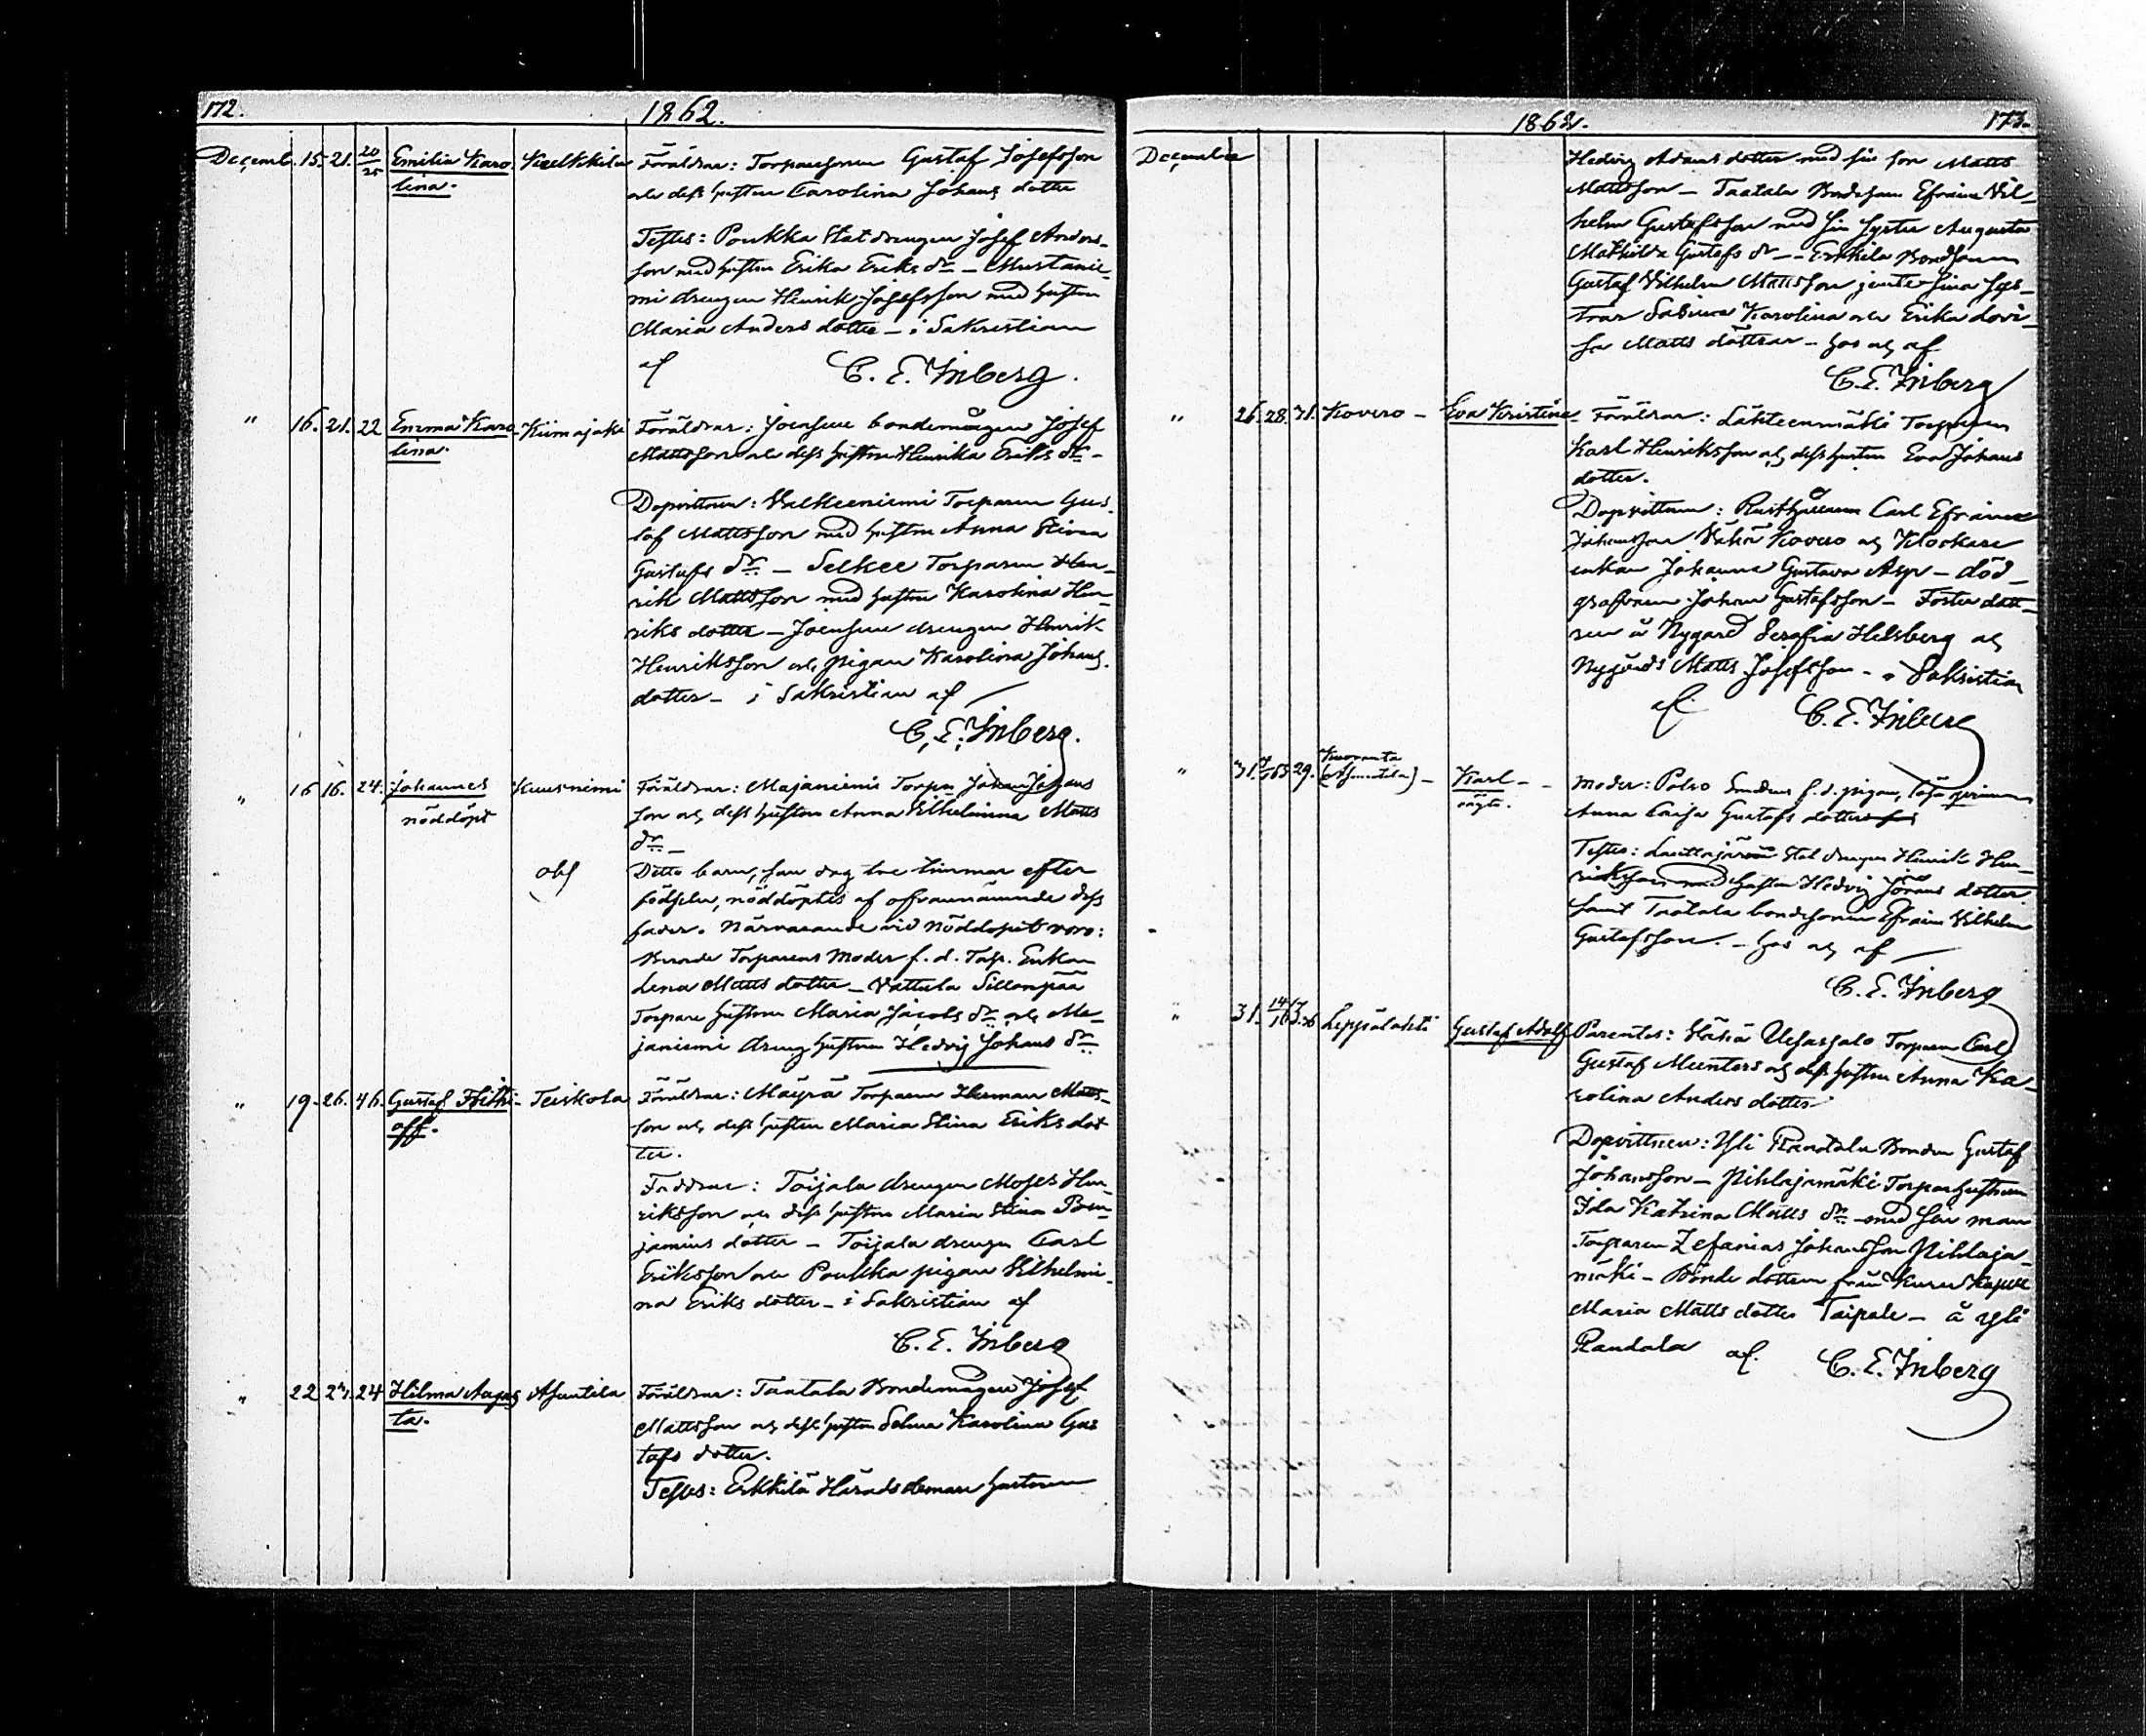 172.
1862.
Decemb. 15. 21. 20/25 Emilia Karo- Keckkila Föräldrar: Torparesonen Gustaf Josefsson
lina. och dess hustru Carolina Johans dotter
Testes: Poukka Statdrengen Josef Anders-
son med hustru Erika Eriks dr — Mustanie-
mi drengen Henrik Josefsson med hustru
Maria Anders dotter — i Sakristian
af C. E. Inberg.
" 16. 21. 22 Emma Karo- Kiimajoki Föräldrar: Joensuu bondemågen Josef
lina. Mattsson och dess hustru Henrika Eriks dr
Dopvittnen: Valkeeniemi Torparen Gus-
taf Mattsson med hustru Anna Stina
Gustafs dr — Selkee Torparen Hen-
rik Mattsson med hustru Karolina Hen-
riks dotter — Joensuu drengen Henrik
Henriksson och pigan Karolina Johans
dotter — i Sakristian af
C. E. Inberg.
" 16 16. 24. Johannes Kuusniemi Föräldrar: Majaniemi Torpn Johan Johans
nöddöpt son och dess hustru Anna Vilhelmina Matts
dr —
obs Detta barn, som dog tre timmar efter
födseln, nöddöptes af ofvannämnde dess
fader. Närvarande vid nöddopet voro:
Torparens Moder f. d. Torp. Enkan
Lena Matts dotter — Vattula Sillanpää
Torpare hustrun Maria Jacobs dr och Ma-
janiemi dreng hustrun Hedvig Johans dr
" 19. 26. 46. Gustaf Fithi- Teiskola Föräldrar: Mäyrä Torparen Herman Matts-
off. son och dess hustru Maria Stina Eriks dot
ter.
Faddrar: Toijala drengen Moses Hen-
riksson och dess hustru Maria Stina Ben-
jamins dotter — Toijala drengen Carl
Eriksson och Poukka pigan Vilhelmi-
na Eriks dotter — i Sakristian af
C. E. Inberg
" 22 27. 24 Hilma Augus- Asuntila Föräldrar: Taatala Bondemågen Josef
ta. Mattsson och dess hustru Selma Karolina Gus
tafs dotter.
Testes: Erkkilä Häradsdomare hustrun
1862.
173.
December
Hedvig Adams dotter med sin son Matts
Mattsson — Taatala Bondesonen Efraim Vil-
helm Gustafsson med sin syster Augusta
Mathilda Gustafs dr — Erkkila Bondsonen
Gustaf Vilhelm Mattsson jemte sina sys-
trar Sabina Karolina och Erika Lovi-
sa Matts döttrar — hos och af
C. E. Inberg
" 26. 28. 31. Kovero — Eva Kristina Föräldrar: Lähteenmäki Torparen
Karl Henriksson och dess hustru Eva Johans
dotter.
Dopvittnen: Rusthållaren Carl Efraim
Johansson Vähä Kovero och Klockare
enkan Johanna Gustava Asp — död-
grafvaren Johan Gustafsson — Foster dott-
ren å Nygård Serafia Helsberg och
Nygårds Matts Josefsson — i Sakristian
af C. E. Inberg
" 31. 63. 29. Kuoranta (Asuntila) — Karl — Moder: Polso f. d. pigan,
oägta. Anna Caisa Gustafs dotter
Testes: Lauttajärvi Stat drengen Henrik Hen-
riksson med hustru Hedvig Jörans dotter
samt Taatala bondesonen Efraim Vilhelm
Gustafsson. — hos och af
C. E. Inberg
" 31. 14/1 63. 26 Leppälahti Gustaf Adolf Parentes: Vähä Uhasjalo Torparen Carl
Gustaf Munters och dess hustru Anna Ka-
rolina Anders dotter
Dopvittnen: Yli Randala Bonden Gustaf
Johansson — Pihlajamäki Torparhustrun
Ida Katrina Matts dr — med sin man
Torparen Zefanias Johansson Pihlaja-
mäki — Bonde dottern från Kuru Kapell
Maria Matts dotter Taipale — å Yli
Randala af C. E. Inberg